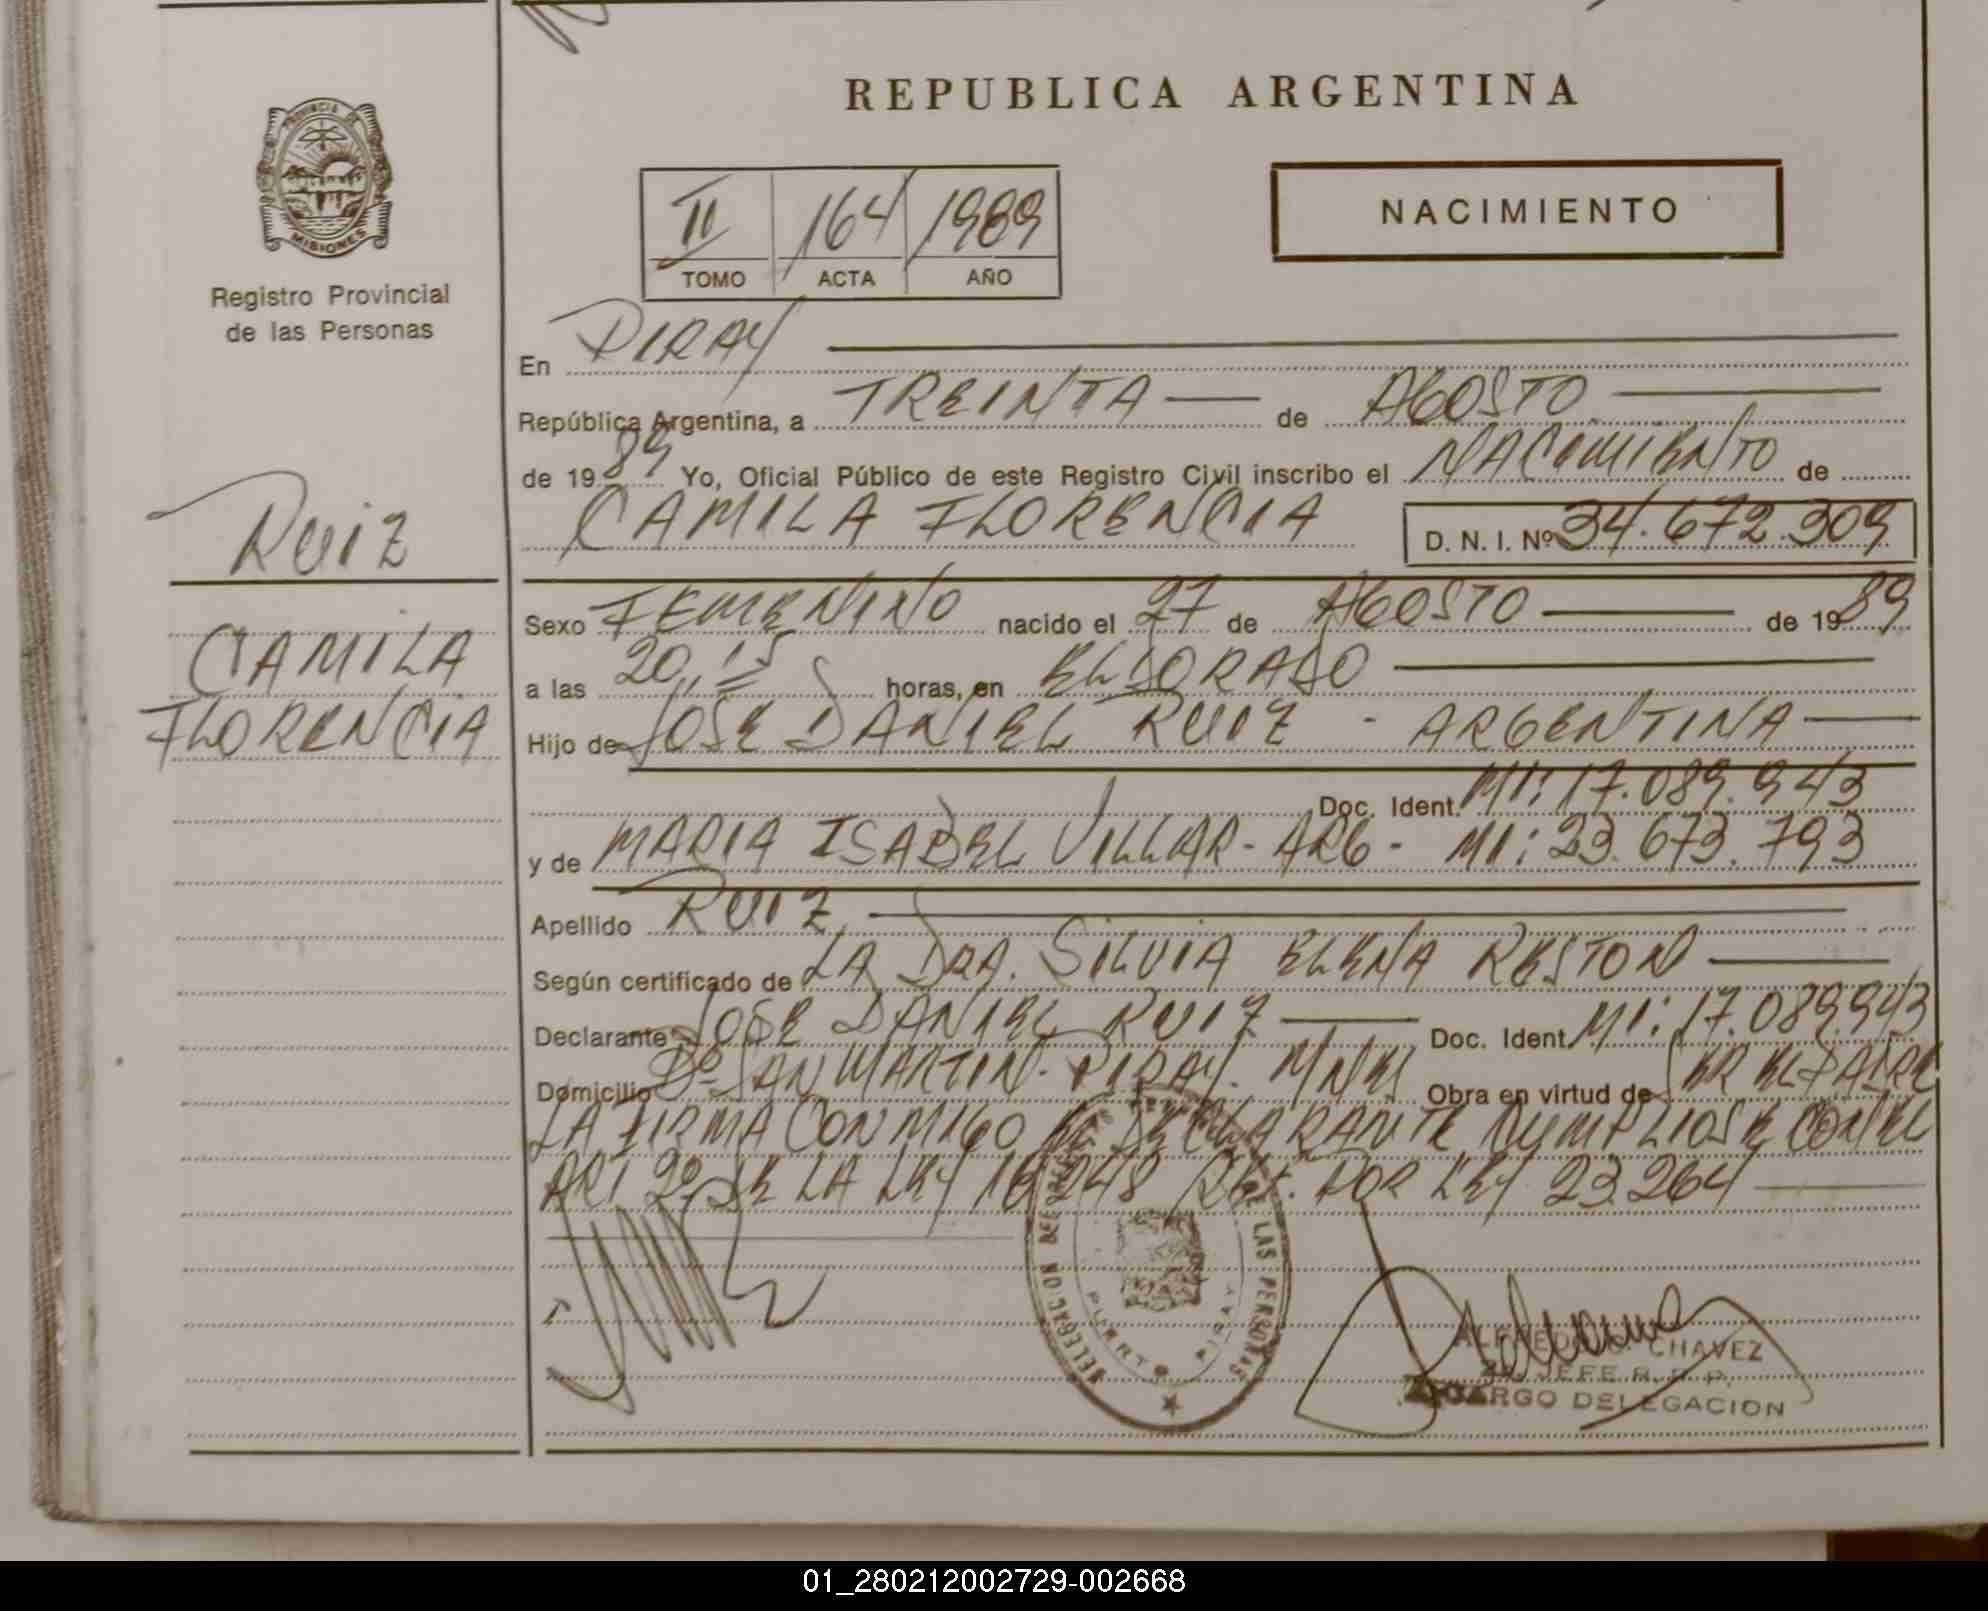 REPUBLICA ARGENTINA
PROVINCIA DE
MISIONES
Registro Provincial
de las Personas
II 164 1989
TOMO ACTA AÑO
NACIMIENTO
En PIRAY
República Argentina, a TREINTA de AGOSTO
de 1989 Yo, Oficial Público de este Registro Civil inscribo el NACIMIENTO de
CAMILA FLORENCIA D. N. I. Nº 34.672.309
RUIZ
CAMILA
FLORENCIA
Sexo FEMENINO nacido el 27 de AGOSTO de 1989
a las 20,15 horas, en ELDORADO
Hijo de JOSE DANIEL RUIZ - ARGENTINA
Doc. Ident. MI: 17.089.943
y de MARIA ISABEL VILLAR - ARG - MI: 23.673.793
Apellido RUIZ
Según certificado de LA DRA. SILVIA ELENA RESTON
Declarante JOSE DANIEL RUIZ Doc. Ident. MI: 17.089.943
Domicilio Bº SAN MARTIN - PIRAY - MNES Obra en virtud de SER EL PADRE
LA FIRMA CONMIGO EL DECLARANTE CUMPLIOSE CON EL
ART 2º DE LA LEY 18248 POR LEY 23.264
DELEGACION DE LAS PERSONAS
PUERTO PIRAY
CHAVEZ
JEFE R. P. P.
A CARGO DELEGACION
01_280212002729-002668